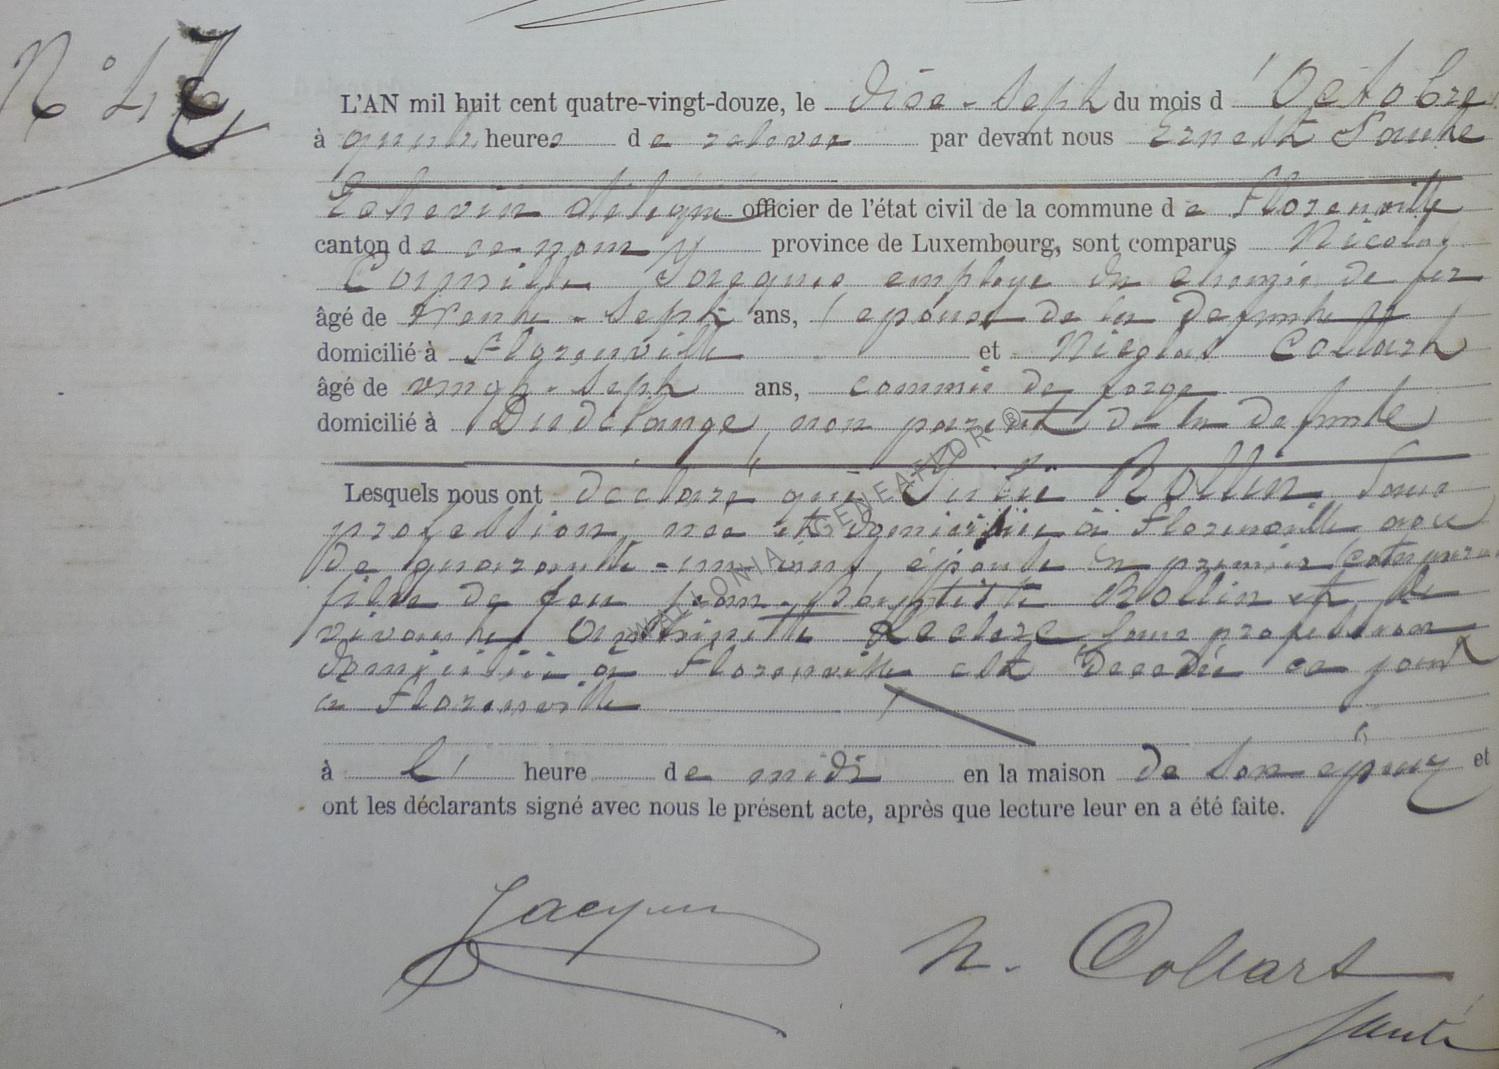 N° 47
L'AN mil huit cent quatre-vingt-douze, le dise-Seph du mois d'Octobre
à heures de relevée par devant nous Ernest Santé
Echevin délégué officier de l'état civil de la commune de Florenville
canton de ce nom province de Luxembourg, sont comparus Nicolas
Camille Jacques employé du chemin de fer
âgé de trente-Sept ans, époux de la defunte
domicilié à Florenville et Nicolas Collart
âgé de vingt-Sept ans, commis de forge
domicilié à Dudelange, non parent de la defunte
Lesquels nous ont déclaré que Rollin Sans
profession, née et domiciliée à Florenville agée
de quarante-un ans, épouse du premier comparant
fille de feu Jean-Baptiste Rollin et de
vivante Leclere Sans profession
domiciliée à Florenville est décédée ce jour
à Florenville
à l' heure de midi en la maison de Son époux et
ont les déclarants signé avec nous le présent acte, après que lecture leur en a été faite.
Jacques
N. Collart
Santé
WALLONIA GENEAFLOR ®